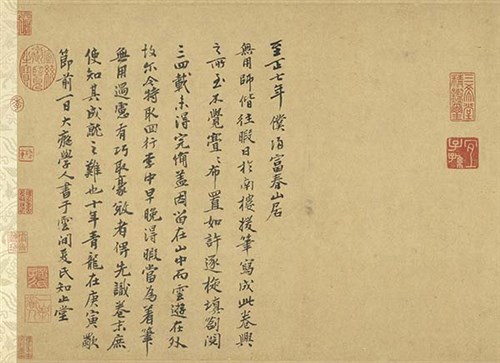 三希堂精鑑璽
宜子孫
至正七年僕歸富春山居
無用師偕往暇日於南樓援筆寫成此卷興
之所至不覺亹〻布置如許逐旋填劄閱
三四載未得完備盖因留在山中而雲遊在外
故尔今特取回行李中早晚得暇當為著筆
無用過慮有巧取豪敚者俾先識卷末庶
使知其成就之難也十年青龍在庚寅歜
節前一日大癡學人書于雲間夏氏知止堂